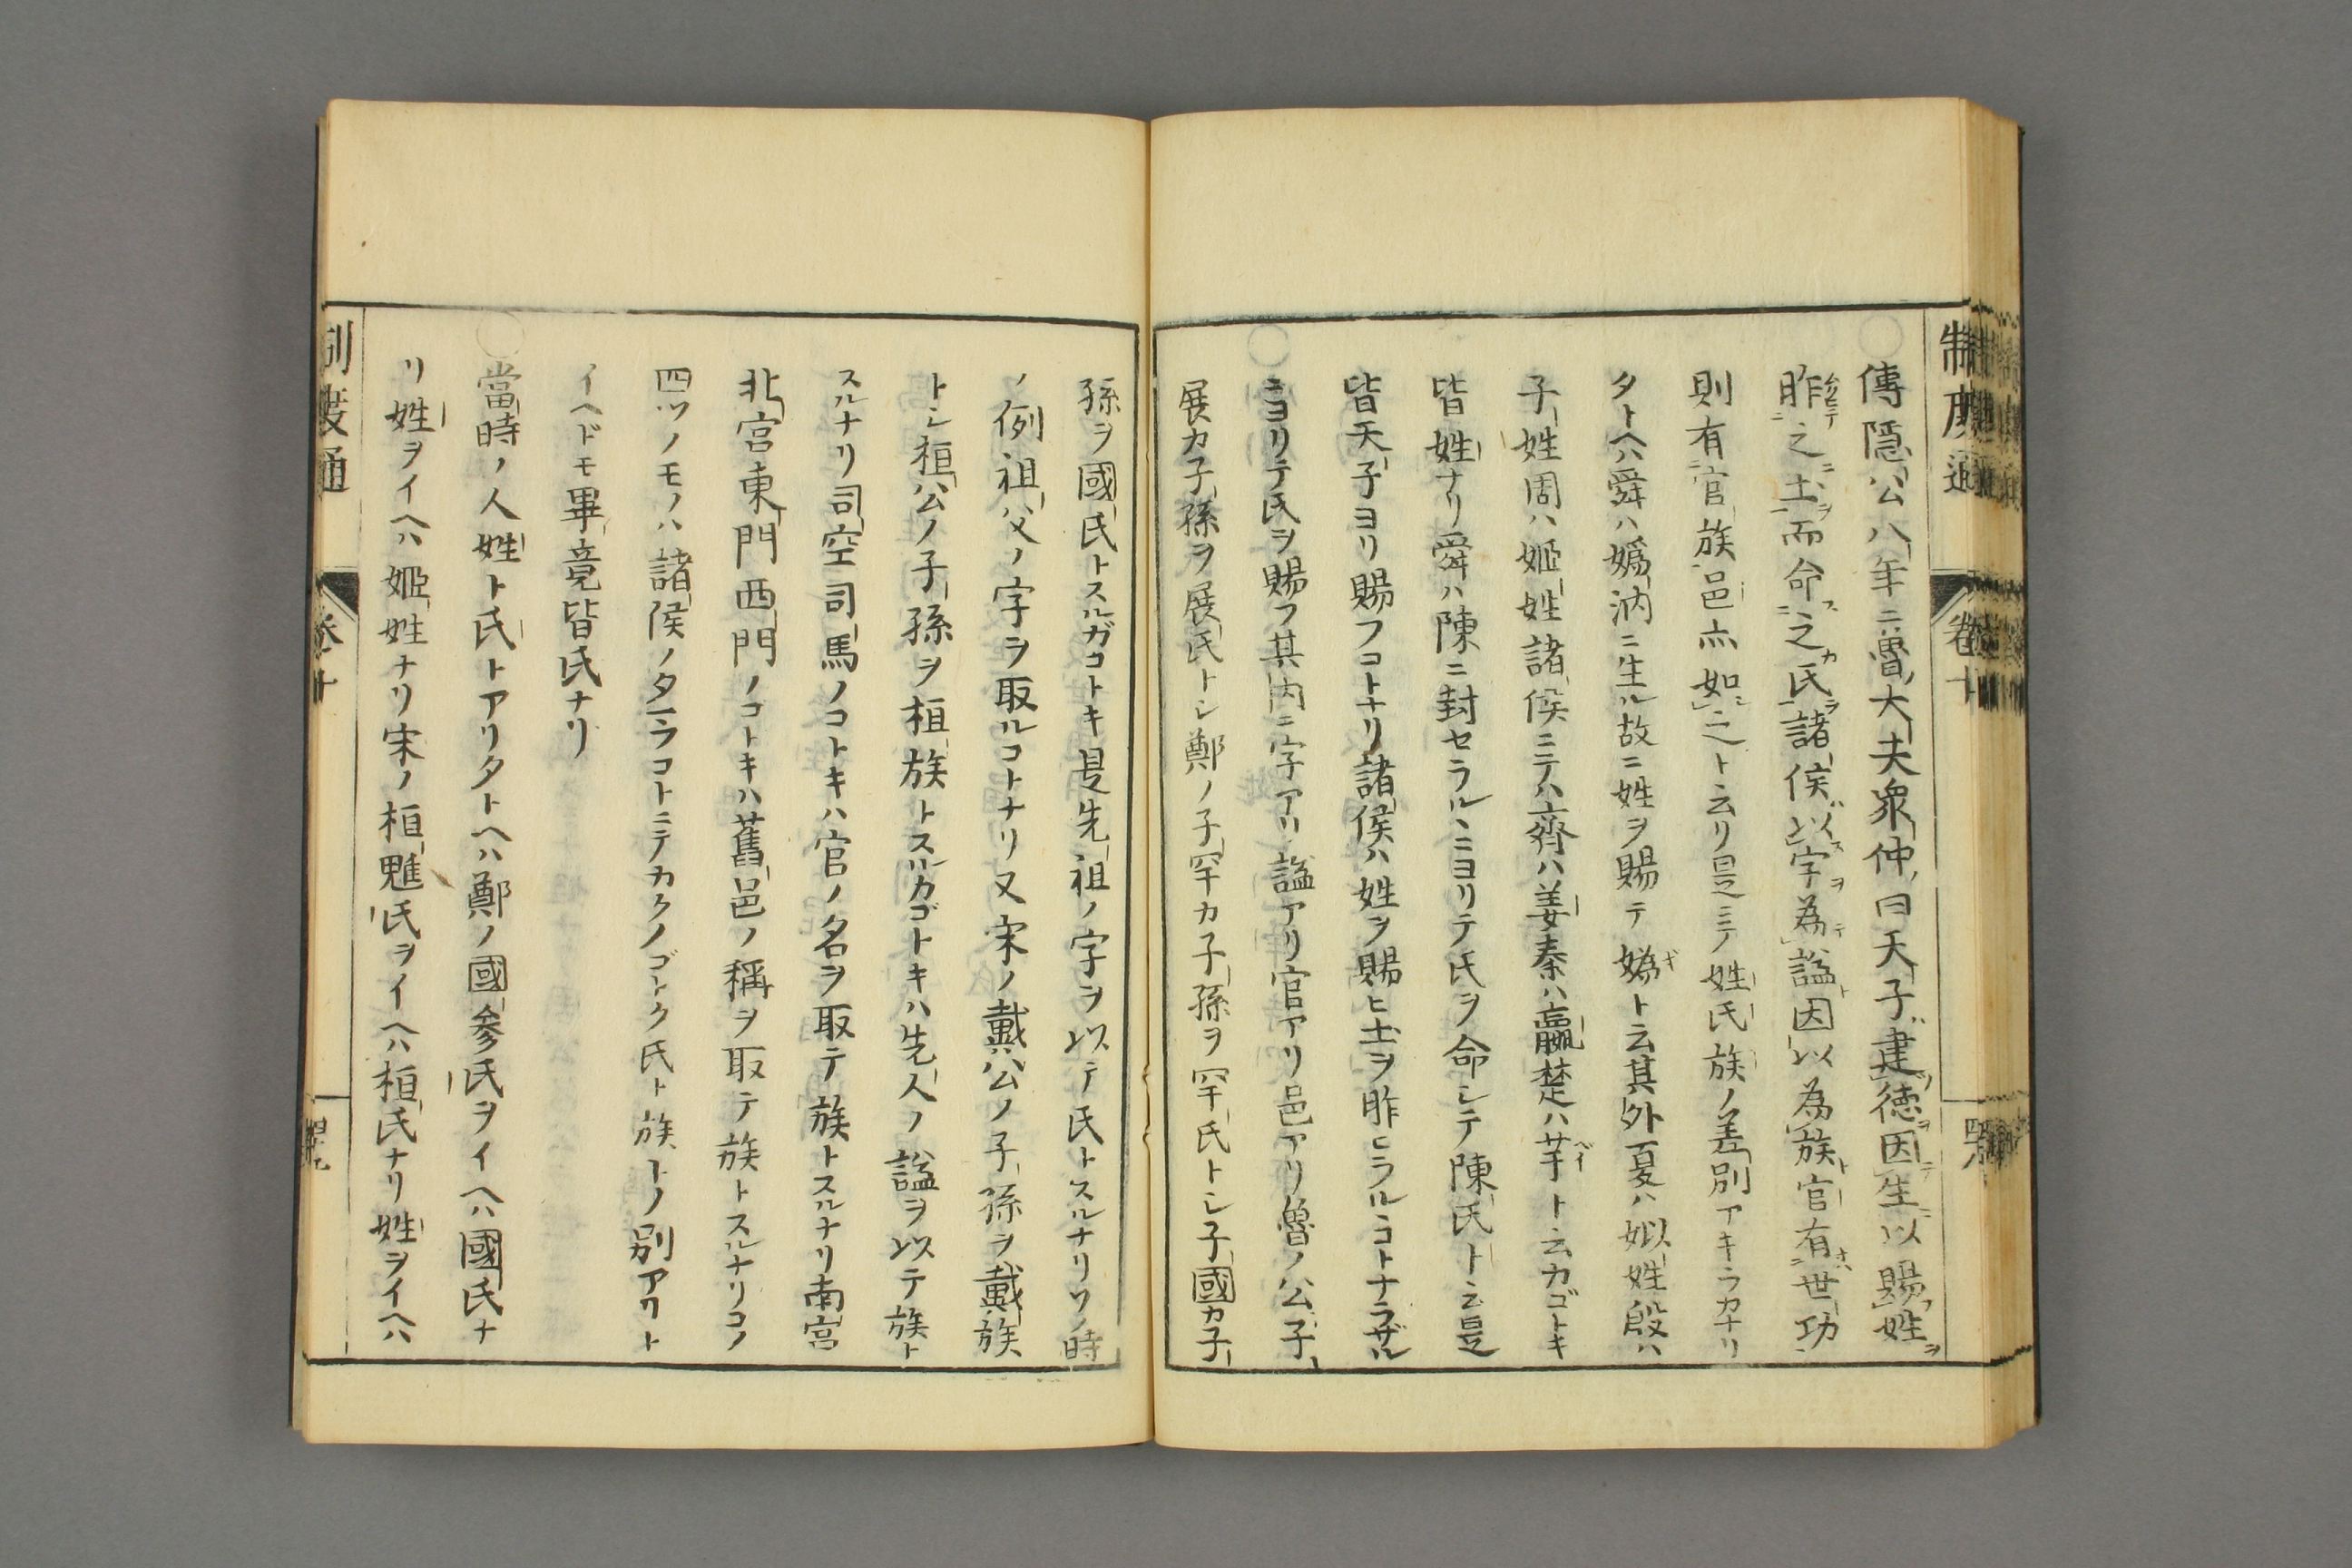 制度通 卷十
傳隱公八年ニ魯ノ大夫衆仲ノ曰天子建徳因生以賜姓
胙之土而命之氏諸侯以字為謚因以為族官有世功
則有官族邑亦如之ト云リ是ニテ姓氏族ノ差別アキラカナリ
タトヘハ舜ハ嬀汭ニ生ル故ニ姓ヲ賜テ嬀ト云其外夏ハ姒姓殷ハ
子姓周ハ姬姓諸侯ニテハ齊ハ姜秦ハ嬴楚ハ芉ト云カゴトキ
皆姓ナリ舜ハ陳ニ封セラルヽニヨリテ氏ヲ命シテ陳氏ト云是
皆天子ヨリ賜フコトナリ諸侯ハ姓ヲ賜ヒ土ヲ胙ヒラルヽコトナラザル
ニヨリテ氏ヲ賜フ其内ニ字アリ謚アリ官アリ邑アリ魯ノ公子
展カ子孫ヲ展氏トシ鄭ノ子罕カ子孫ヲ罕氏トシ子國カ子
孫ヲ國氏トスルガコトキ是先祖ノ字ヲ以テ氏トスルナリソノ時
ノ例祖父ノ字ヲ取ルコトナリ又宋ノ戴公ノ子孫ヲ戴族
トシ桓公ノ子孫ヲ桓族トスルカゴトキハ先人ノ謚ヲ以テ族ト
スルナリ司空司馬ノコトキハ官ノ名ヲ取テ族トスルナリ南宮
北宮東門西門ノコトキハ舊邑ノ稱ヲ取テ族トスルナリコノ
四ツノモノハ諸侯ノタラコトニテカクノゴトク氏ト族トノ別アリト
イヘドモ畢竟皆氏ナリ
當時ノ人姓ト氏トアリタトヘハ鄭ノ國參氏ヲイヘハ國氏ナ
リ姓ヲイヘハ姬姓ナリ宋ノ桓魋氏ヲイヘハ桓氏ナリ姓ヲイヘハ
制度通 卷十